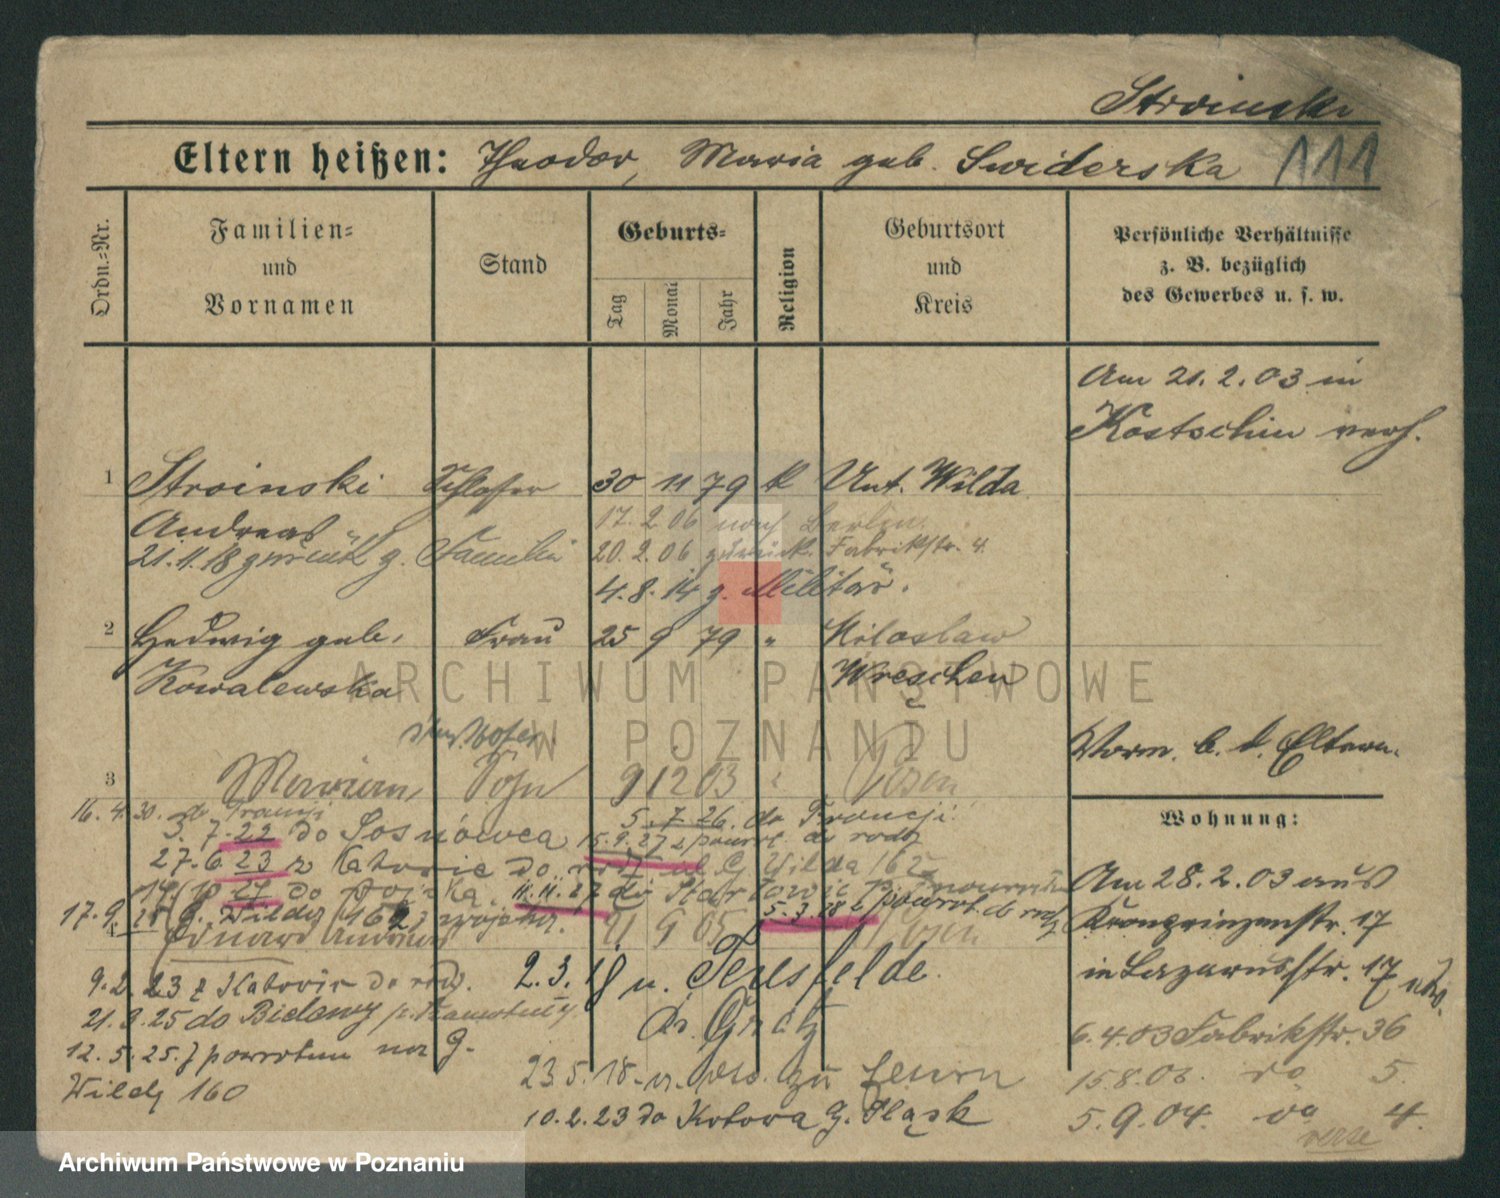 Stroinski
Eltern heißen: Theodor, Maria geb. Swiderska 111
Ordn.-Nr.
Familien-
und
Vornamen
Stand
Geburts-
Tag
Monat
Jahr
Religion
Geburtsort
und
Kreis
Persönliche Verhältnisse
z. B. bezüglich
des Gewerbes u. s. w.
Am 21.2.03 in
Kostschin verh.
1 Stroinski Schlosser 30 11 79 k Unt. Wilda
Andreas 17.2.06 nach Berlin.
21.11.18 zurück z. Familie 20.2.06 zurück. Fabrikstr. 4.
4.8.14 z. Militär.
2 Hedwig geb. Frau 25 9 79 " Miloslaw
Kowalewska Wreschen
Vorm. b. d. Eltern.
3 Marian, Sohn 9 12 03 " Posen
16.4.30. do Francji
5.7.26. do Francji.
3.7.22 do Sosnówca 15.9.27 z powrot. do rodz
27.6.23 z Katowic do rodz ul G. Wilda 162
14/10 27 do Wojska. 11.11.27 do
5.3.28 z powrot. do rodz
17.9. G. Wilda 162 z wojska.
4 Eduard 21 9 05 Posen
9.2.23 z Katowic do rodz. 2.3.18 n.
21.3.25 do Bielawy
Kr. Grätz
12.5.25. z powrotem na G.
Wildę 160
23.5.18
10.2.23 do G. Śląsk
Wohnung:
Am 28.2.03 aus
Kronprinzenstr. 17
in Lazarusstr. 17
6.4.03 Fabrikstr. 36
15.8.03. do 5.
5.9.04. do 4.
verse
ARCHIWUM PAŃSTWOWE
W POZNANIU
Archiwum Państwowe w Poznaniu